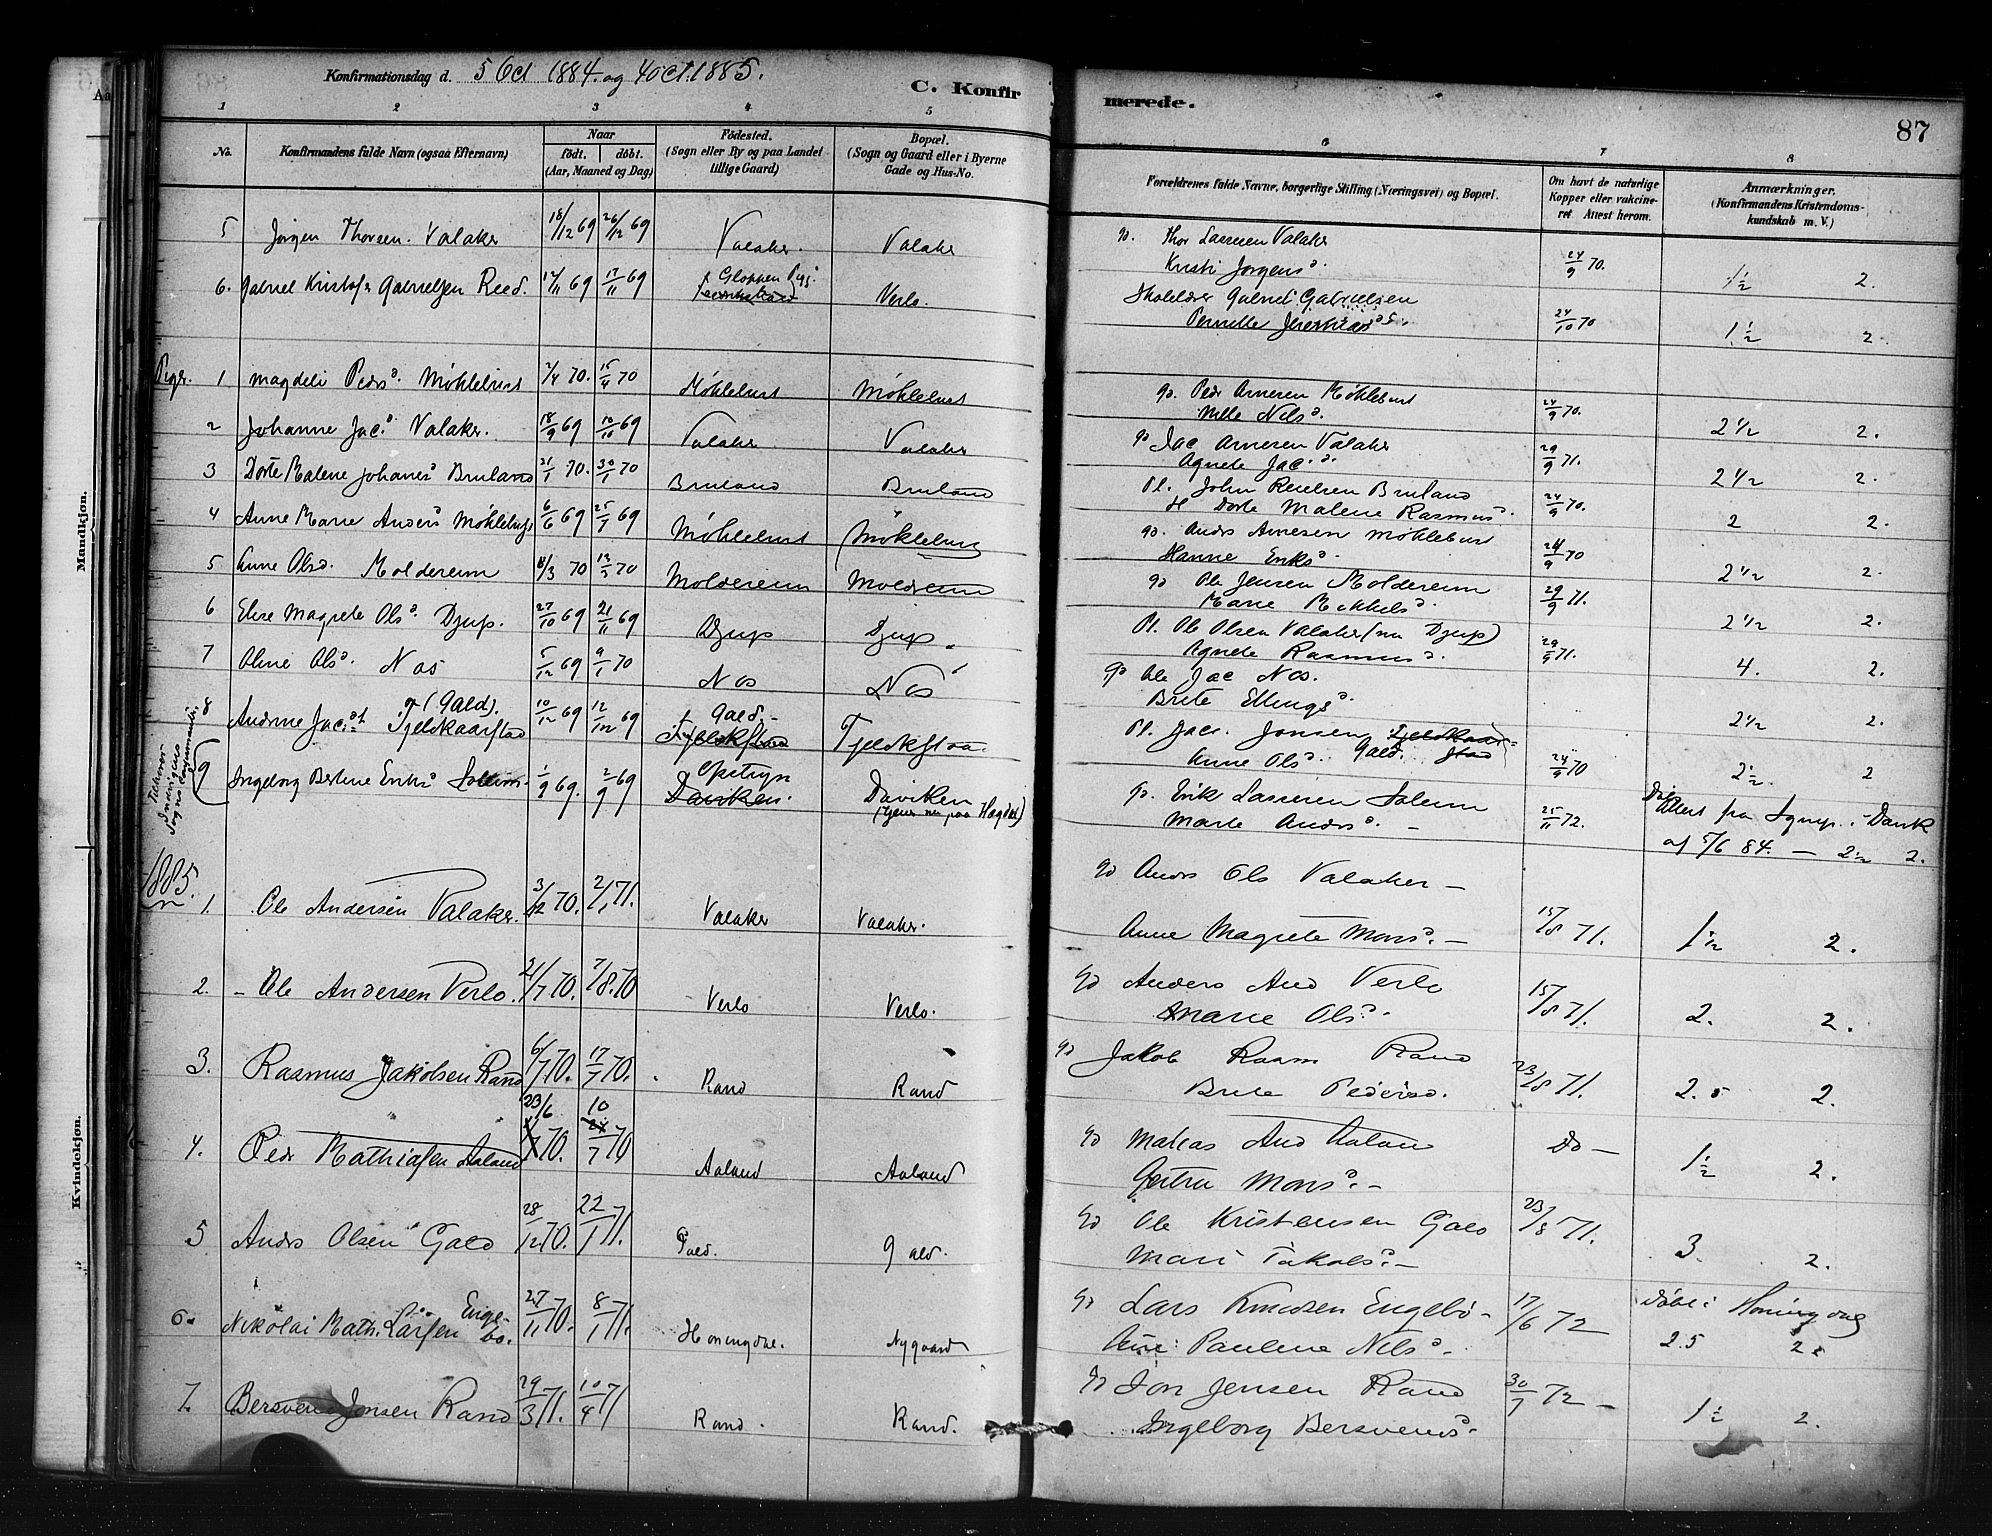 Konfirmationsdag d. 5 Oct 1884. og 4 oct. 1885.
C. Konfirmerede.
87
1 2 3 4 5 6 7 8
No. Konfirmandens fulde Navn (ogsaa Efternavn) Naar født. døbt. (Aar, Maaned og Dag) Fødested. (Sogn eller By og paa Landet tillige Gaard) Bopæl. (Sogn og Gaard eller i Byerne Gade og Hus-No. Forældrenes fulde Navne, borgerlige Stilling (Næringsvei) og Bopæl. Om havt de naturlige Kopper eller vakcineret Attest herom. Anmærkninger. (Konfirmandens Kristendomskundskab m. V.)
5 Jørgen Thorsen Valaker 18/12 69 26/12 69 Valaker. Valaker gd. Thor Lassesen Valaker
Kristi Jørgensd. 24/9 70. 1 1/2 2.
6. Gabriel Kristof. Gabrielsen Reed. 14/11 69 17/11 69 Gloppen Verlo. Skolelærer Gabriel Gabrielsen
Pernille 24/10 70 1 1/2 2.
Piger. 1 Magdeli Pedsd. Møklebust 2/4 70. 15/4 70 Møklebust Møklebust gd. Peder Arnesen Møklebust
Nille Nilsd. 24/9 70. 2 1/2 2.
2 Johanne Jacd. Valaker. 18/9 69 10/10 69 Valaker Valaker gd Jac Arnesen Valaker
Agnete Jac.d. 29/9 71. 2 1/2 2.
3 Dorte Malene Johansd Bruland 21/1 70. 30/1 70 Bruland Bruland Pl. John Reielsen Bruland
H Dorte Malene Rasmusd. 24/9 70. 2 2.
4 Anne Marie Andersd Møklebust 6/6 69 25/7 69 Møklebust Møklebust gd. Anders Arnesen Møklebust
Hanne Eriksd. 24/9 70 2 1/2 2.
5 Anne Olsd. Moldereim 8/3 70 13/3 70 Moldereim Moldreim gd Ole Jensen Moldereim
Marie Mikkelsd. 29/9 71. 2 1/2 2.
6 Elise Magrete Olsd Djup. 27/10 69 21/11 69 Djup Djup Pl. Ole Olsen Valaker (nu Djup)
Agnete Rasmusd. 29/9 71. 4. 2.
7 Oline Olsd. Nos 5/12 69 9/1 70 Nos Nos gd Ole Jac Nos.
Brite Ellingsd. 2 1/2 2.
8 Andrine Jac.d Tjeldkaarstad (Gald). 10/12 69 12/12 69 Gald Tjeldkstad Tjeldkstaa Pl. Jac. Jonsen Tjeldkaarstad
Anne Olsd. Gald. 24/9 70 2 1/2. 2
Tilhører Indvigens Sognecommunion
9 Ingeborg Bertine Eriksd Solem 1/9 69. 2/9 69 Opstryn Daviken. Daviken (tjener nu paa Hagdal) gd. Erik Lassesen Solem
Marte Andersd. 25/11 72. Attest fra Sgnep. i Davik
af 5/6 84. — 2 1/2 2.
1885.
1. Ole Andersen Valaker. 3/12 70. 2/1 71. Valaker Valaker. gd Anders Ols Valaker —
Anne Magrete Monsd. — 15/8 71. 1 1/2 2.
2. Ole Andersen Verlo. 21/7 70. 7/8. 70 Verlo Verlo. gd Anders And Verlo
Marie Olsd. 15/8 71. 2. 2.
3. Rasmus Jakobsen Rand 6/7 70. 17/7 70. Rand Rand gd Jakob Rasm Rand
Brite Pedersd. 23/8 71. 2. 5 2.
4. Peder Mathiasen Aaland 23/6 70. 10/7 70 Aaland Aaland gd Matias And Aaland
Gertru Monsd. — Do — 1 1/2 2.
5 Anders Olsen Gald 28/12 70. 22/1 71. Gald. Gald. gd Ole Kristensen Gald
Mari Jakobsd. — 23/8 71. 3. 2.
6. Nikolai Math. Larsen Engebø. 27/11 70. 8/1 71. Honingdal. Nygaard gd Lars Knudsen Engebø —
Ane Pauline Nilsd. 17/6 72 Døbt i Honingdal
2.5 2.
7. Bersvend Jensen Rand 29/3 71. 10/4 71 Rand. Rand. gd Jon Jensen Rand
Ingeborg Bersvensd. 30/7 72 — 1 1/2 2.
Mandkjøn.
Kvindekjøn.